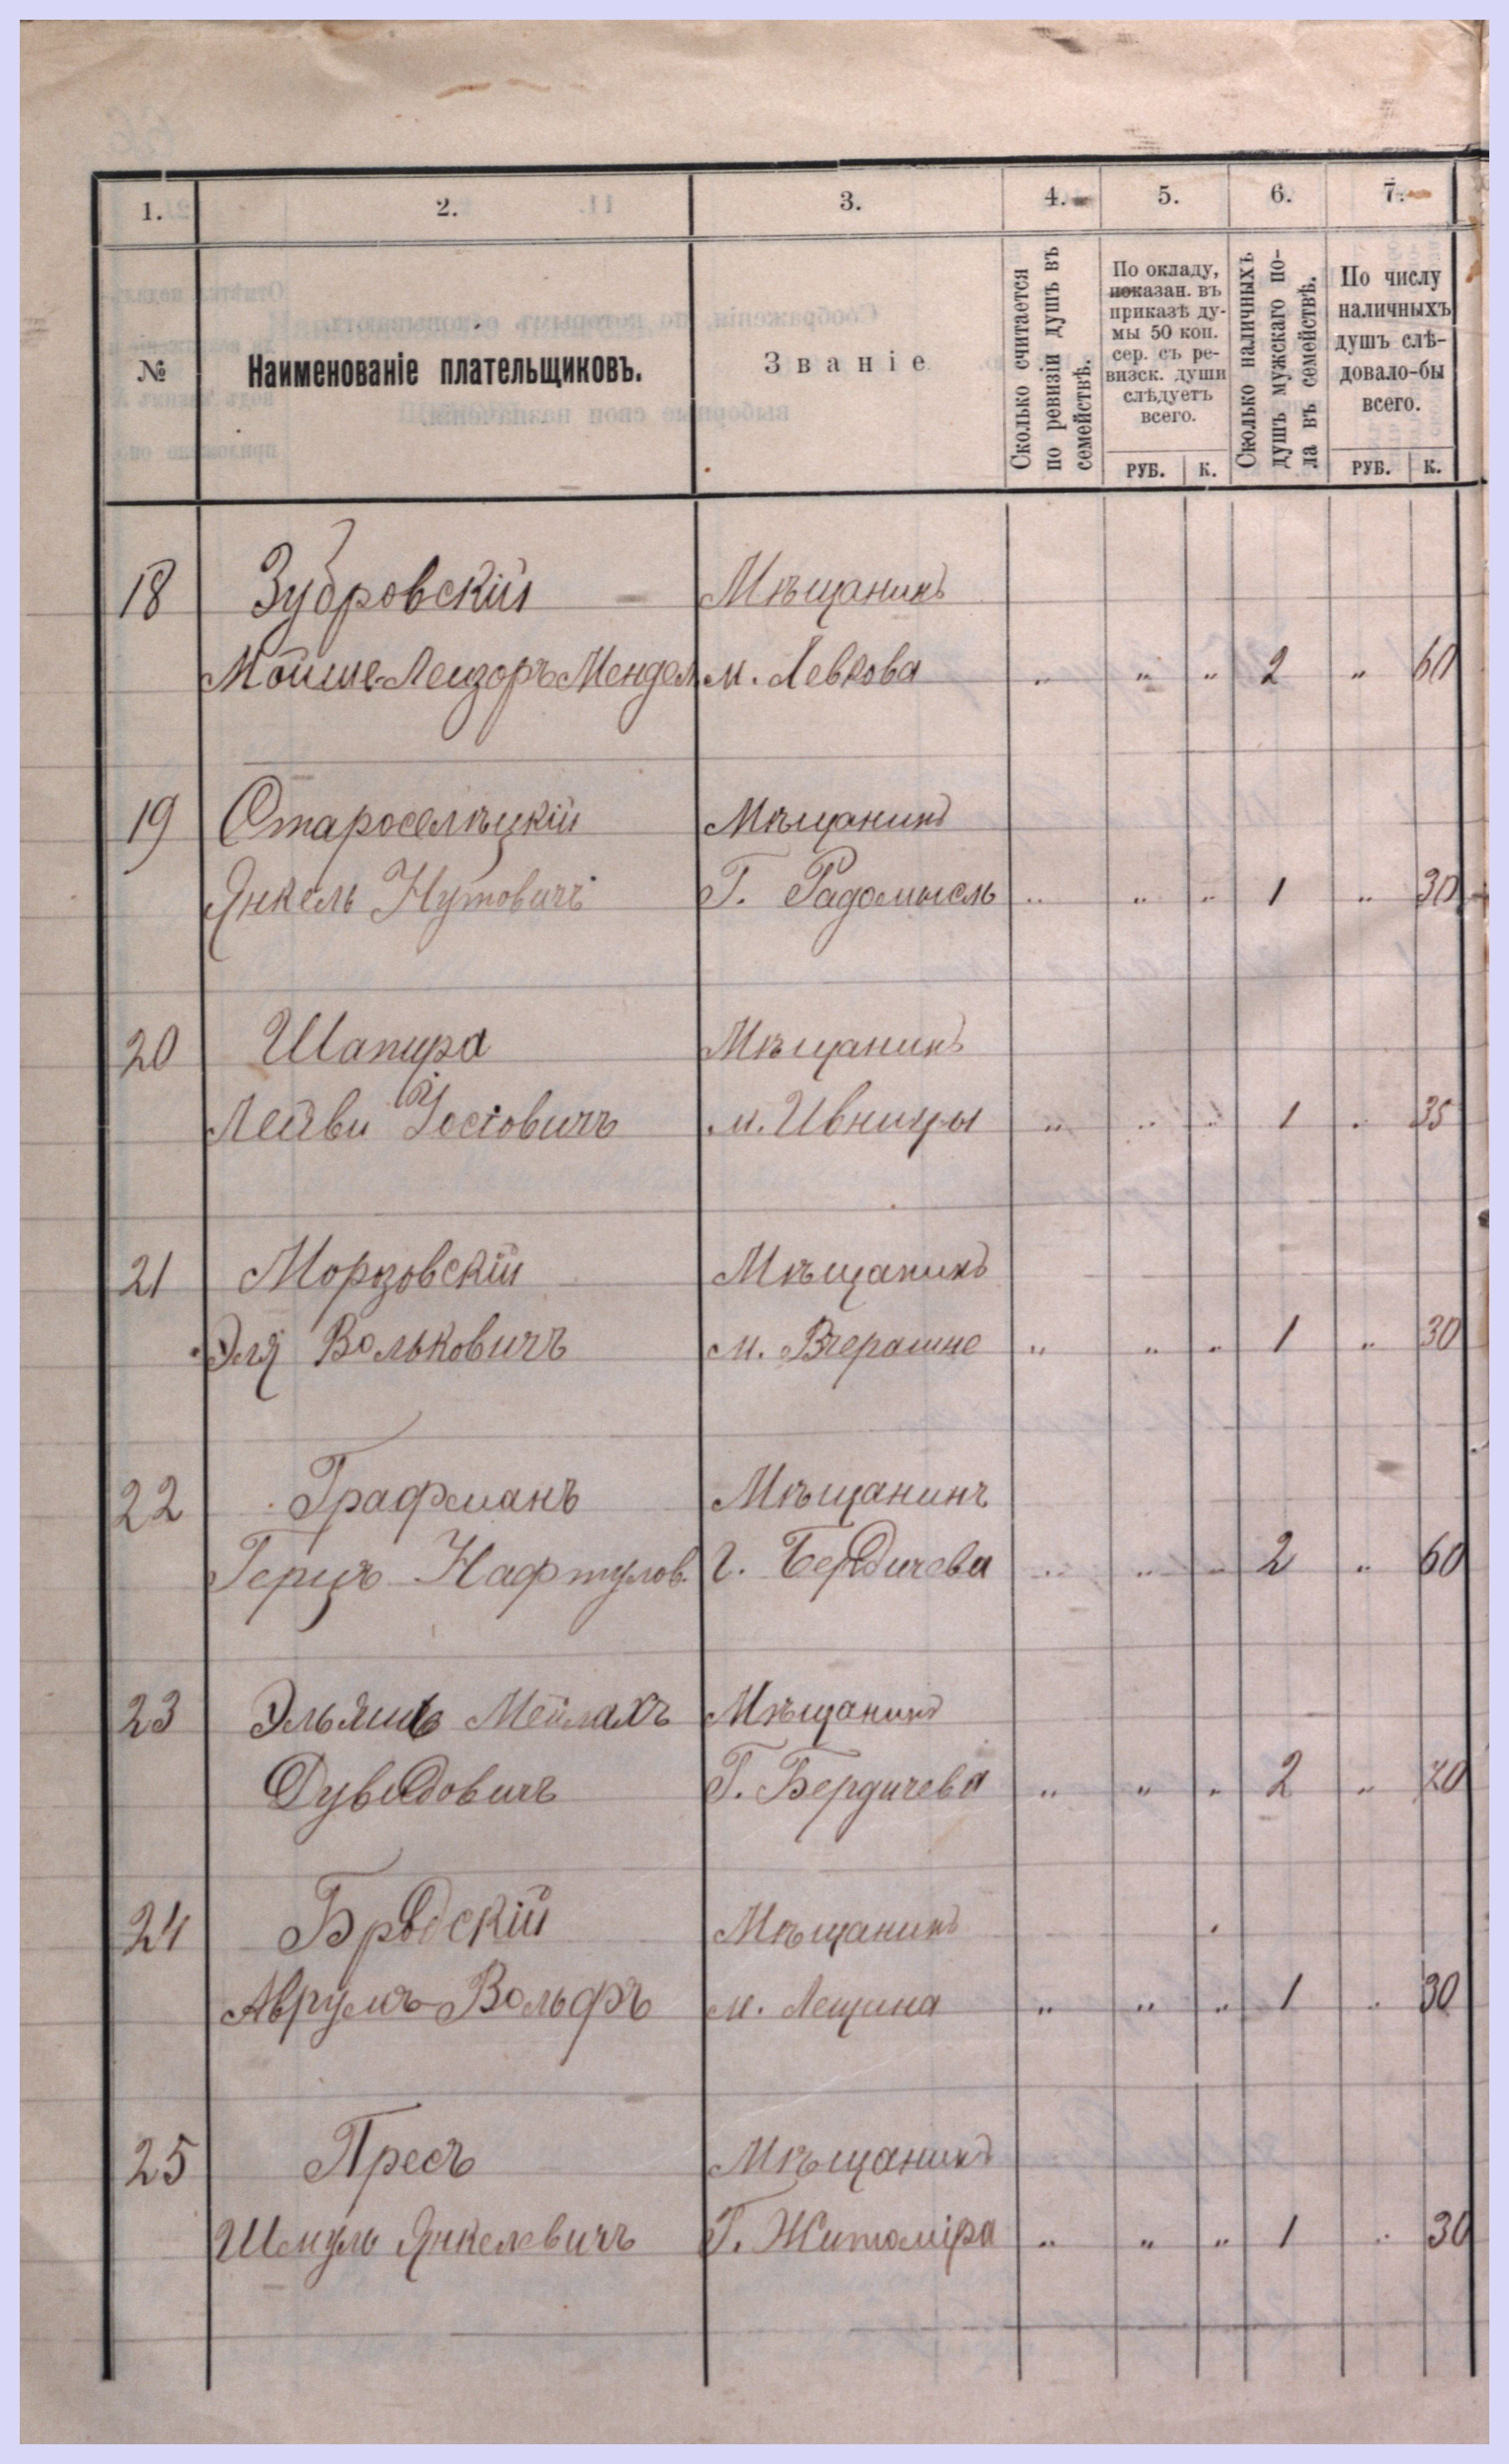 1. 2. 3. 4. 5. 6. 7.
№
Наименованіе плательщиковъ.
Званіе
Сколько считается
по ревизіи душъ въ
семействѣ.
По окладу,
показан. въ
приказѣ ду-
мы 50 коп.
сер. съ ре-
визск. души
слѣдуетъ
всего.
РУБ. К.
Сколько наличныхъ
душъ мужскаго по-
ла въ семействѣ.
По числу
наличныхъ
душъ слѣ-
довало-бы
всего.
РУБ. К.
18 Зубровскій Мѣщанинъ
Мойше-Лейзоръ Мендел м. Левкова " " " 2 " 60
19 Старосельцкій Мѣщанинъ
Янкель Нутовичъ Г. Радомысль " " " 1 " 30
20 Шапира Мѣщанинъ
Лейви м. Ивницы " " " 1 " 35
21 Морозовскій Мѣщанинъ
Эля Вольковичъ м. Вчерашне " " " 1 " 30
22 Графманъ Мѣщанинъ
Герцъ Нафтулов. г. Бердичева " " " 2 " 60
23 Эльяшъ Мейлахъ Мѣщанинъ
Дувидовичъ Г. Бердичева " " " 2 " 70
24 Бродскій Мѣщанинъ
Аврумъ-Вольфъ м. Лещина " " " 1 " 30
25 Пресъ Мѣщанинъ
Шмуль Янкелевичъ Г. Житоміра " " " 1 " 30